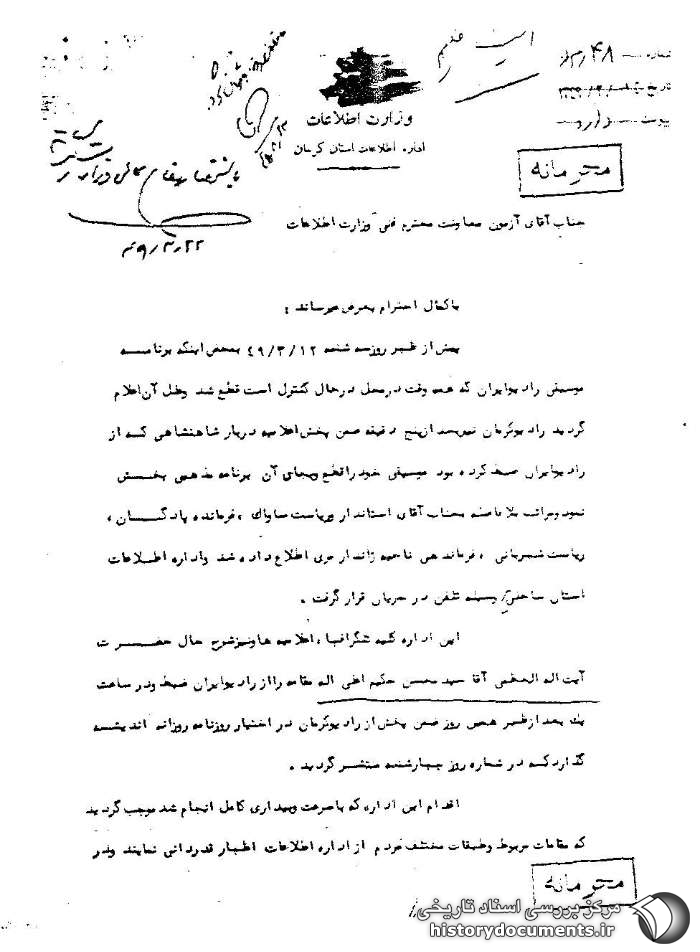 شماره ۴۸
تاریخ
پیوست
وزارت اطلاعات
اداره اطلاعات استان کرمان
محرمانه
۴۹/۳/۲۲
جناب آقای آزمون معاونت محترم فنی وزارت اطلاعات
باکمال احترام بعرض میرساند :
پیش از ظهر روز سه شنبه ۴۹/۳/۱۲ بمحض اینکه برنامه
موسیقی رادیو ایران که همه وقت در محل در حال کنترل است قطع شد وعلل آن اعلام
گردید رادیو کرمان نیز بعد از پنج دقیقه ضمن پخش اعلامیه دربار شاهنشاهی که از
رادیو ایران ضبط کرده بود موسیقی خود را قطع وبجای آن برنامه مذهبی پخش
نمود ومراتب بلافاصله بجناب آقای استاندار وریاست ساواک ، فرمانده پادگان ،
ریاست شهربانی ، فرماندهی ناحیه ژاندارمری اطلاع داده شد واداره اطلاعات
استان ساحلی بوسیله تلفن در جریان قرار گرفت .
این اداره کلیه تلگرافها ، اعلامیه ها ونیز شرح حال حضرت
آیت اله العظمی آقا سید محسن حکیم اعلی اله مقامه را از رادیو ایران ضبط ودر ساعت
یک بعد از ظهر همین روز ضمن پخش از رادیو کرمان در اختیار روزنامه روزانه اندیشه
گذارد که در شماره روز چهارشنبه منتشر گردید .
اقدام این اداره که باسرعت وبیداری کامل انجام شد موجب گردید
که مقامات مربوط وطبقات مختلف مردم از اداره اطلاعات اظهار قدردانی نمایند ودر
محرمانه
مرکز بررسی اسناد تاریخی
historydocuments.ir